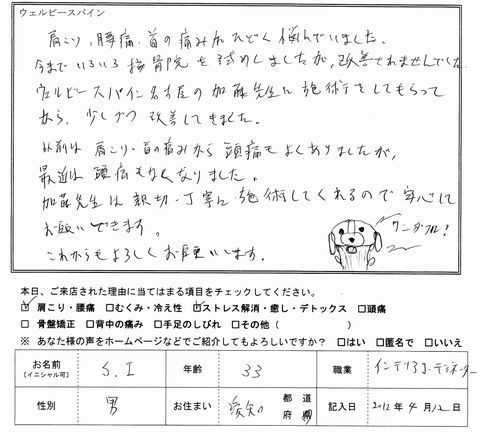 ウェルビースパイン
肩こり、腰痛、首の痛みがひどく悩んでいました。
今までいろいろ接骨院を試めしましたが、改善されませんでした。
ウェルビースパイン名古屋の加藤先生に施術をしてもらって
から、少しづつ改善してきました。
以前は肩こり・首の痛みから頭痛もよくありましたが、
最近は頭痛もなくなりました。
加藤先生は親切・丁寧に施術してくれるので安心して
お願いできます。
ワンダフル!
これからもよろしくお願いします。
本日、ご来店された理由に当てはまる項目をチェックしてください。
☑肩こり・腰痛 □むくみ・冷え性 ☑ストレス解消・癒し・デトックス □頭痛
□骨盤矯正 □背中の痛み □手足のしびれ □その他( )
※ あなた様の声をホームページなどでご紹介してもよろしいですか? □はい □匿名で □いいえ
お名前 (イニシャル可) S.I 年齢 33 職業 インテリアコーディネーター
性別 男 お住まい 愛知 都道府県 記入日 2012年4月12日